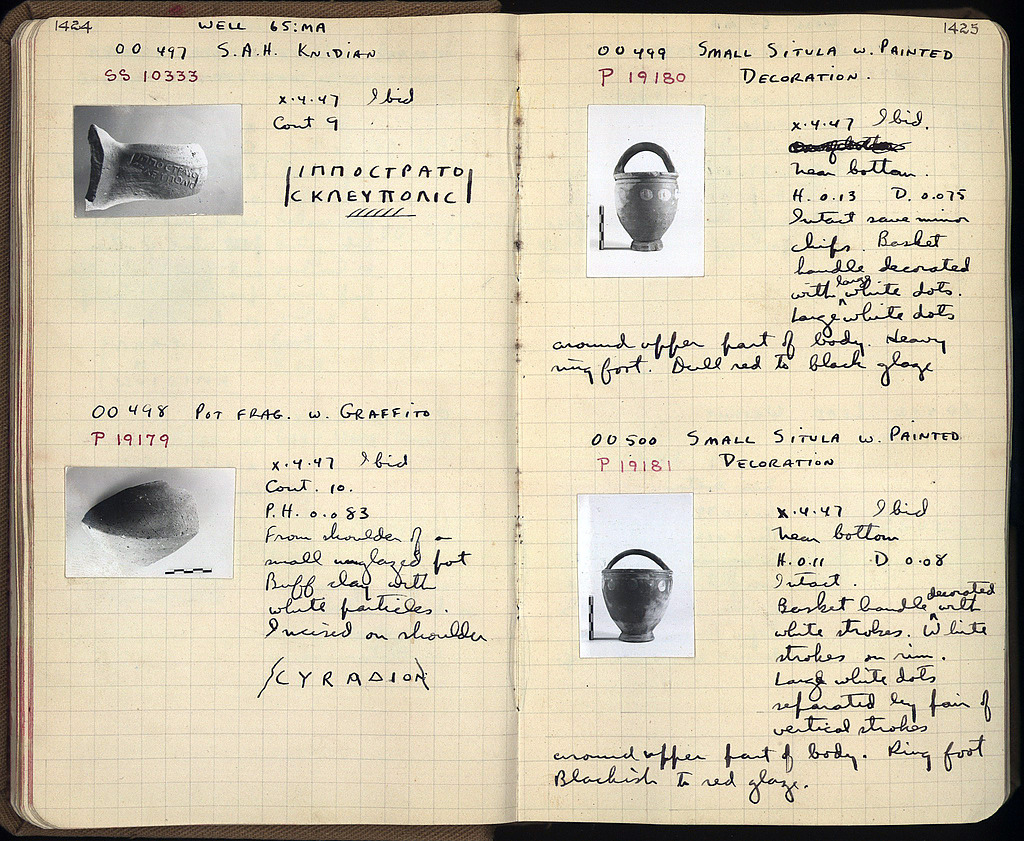 1424
WELL 65:MA
OO 497 S.A.H. KNIDIAN
SS 10333
x.4.47 Ibid
Cont 9
ΙΠΠΟCΤΡΑΤΟ
CΚΛΕΥΠΟΛΙC
OO 498 POT FRAG. W. GRAFFITO
P 19179
x.4.47 Ibid
Cont. 10.
P.H. 0.083
From shoulder of a
small unglazed pot
Buff clay with
white particles.
Incised on shoulder
CYRADION
1425
OO 499 SMALL SITULA W. PAINTED
P 19180 DECORATION.
x.4.47 Ibid.
near bottom.
H. 0.13 D. 0.075
Intact save minor
chips. Basket
handle decorated
with large white dots.
Large white dots
around upper part of body. Heavy
ring foot. Dull red to black glaze
OO 500 SMALL SITULA W. PAINTED
P 19181 DECORATION
x.4.47 Ibid
near bottom
H. 0.11 D 0.08
Intact.
Basket handle decorated with
white strokes. White
strokes on rim.
Large white dots
separated by pair of
vertical strokes
around upper part of body. Ring foot
Blackish to red glaze.